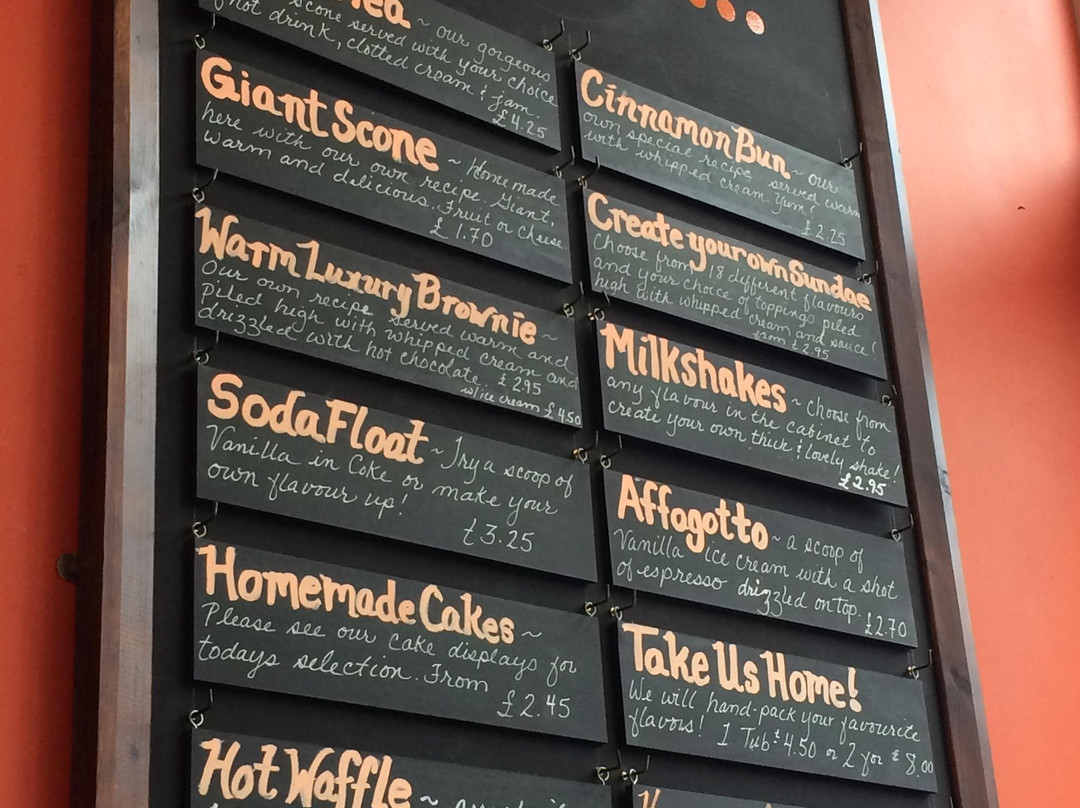 ~ our gorgeous
scone served with your choice
hot drink, clotted cream & jam.
£4.25
Giant Scone ~ Homemade
here with our own recipe. Giant,
warm and delicious. Fruit or cheese.
£1.70
Warm Luxury Brownie ~
Our own recipe served warm and
Piled high with whipped cream and
drizzled with hot chocolate. £2.95
w/ice cream £4.50
Soda Float ~ Try a scoop of
Vanilla in Coke or make your
own flavour up!
£3.25
Homemade Cakes ~
Please see our cake displays for
todays selection. From
£2.45
Hot Waffle ~
Cinnamon Bun ~ our
own special recipe served warm
with whipped cream. Yum!
£2.25
Create your own Sundae
Choose from 18 different flavours
and your choice of toppings piled
high with whipped cream and sauce!
from £2.95
Milkshakes ~ choose from
any flavour in the cabinet to
create your own thick & lovely shake!
£2.95
Affogotto ~ a scoop of
Vanilla ice cream with a shot
of espresso drizzled on top.
£2.70
Take Us Home!
We will hand-pack your favourite
flavors! 1 Tub £4.50 or 2 for £8.00